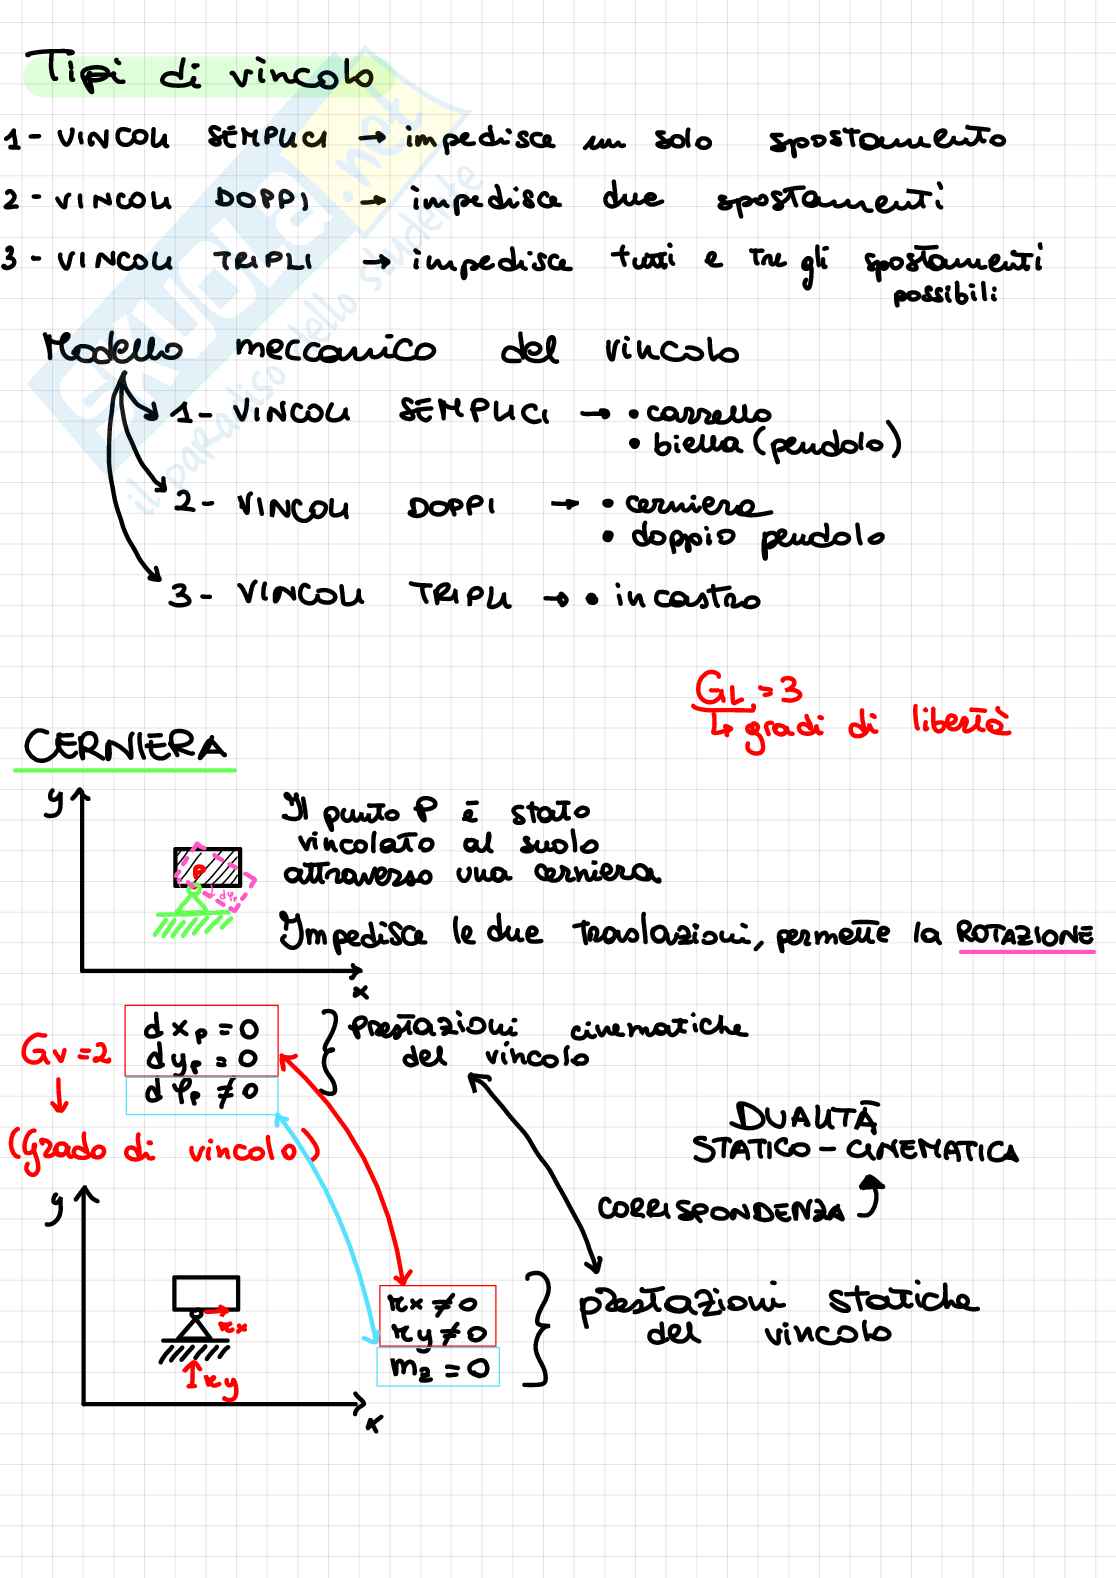 Tipi di vincolo
1 - VINCOLI SEMPLICI → impedisce un solo spostamento
2 - VINCOLI DOPPI → impedisce due spostamenti
3 - VINCOLI TRIPLI → impedisce tutti e tre gli spostamenti
possibili
Modello meccanico del vincolo
1 - VINCOLI SEMPLICI → • carrello
• biella (pendolo)
2 - VINCOLI DOPPI → • cerniera
• doppio pendolo
3 - VINCOLI TRIPLI → • incastro
GL = 3
↳ gradi di libertà
CERNIERA
y
Il punto P è stato
vincolato al suolo
attraverso una cerniera.
P
dφp
Impedisce le due traslazioni, permette la ROTAZIONE
x
Gv = 2
d xp = 0
d yp = 0
d φp ≠ 0
prestazioni cinematiche
del vincolo
(Grado di vincolo)
DUALITÀ
STATICO - CINEMATICA
CORRISPONDENZA
y
rx
ry
x
rx ≠ 0
ry ≠ 0
mz = 0
prestazioni statiche
del vincolo
SKUOLA.net
il paradiso dello studente